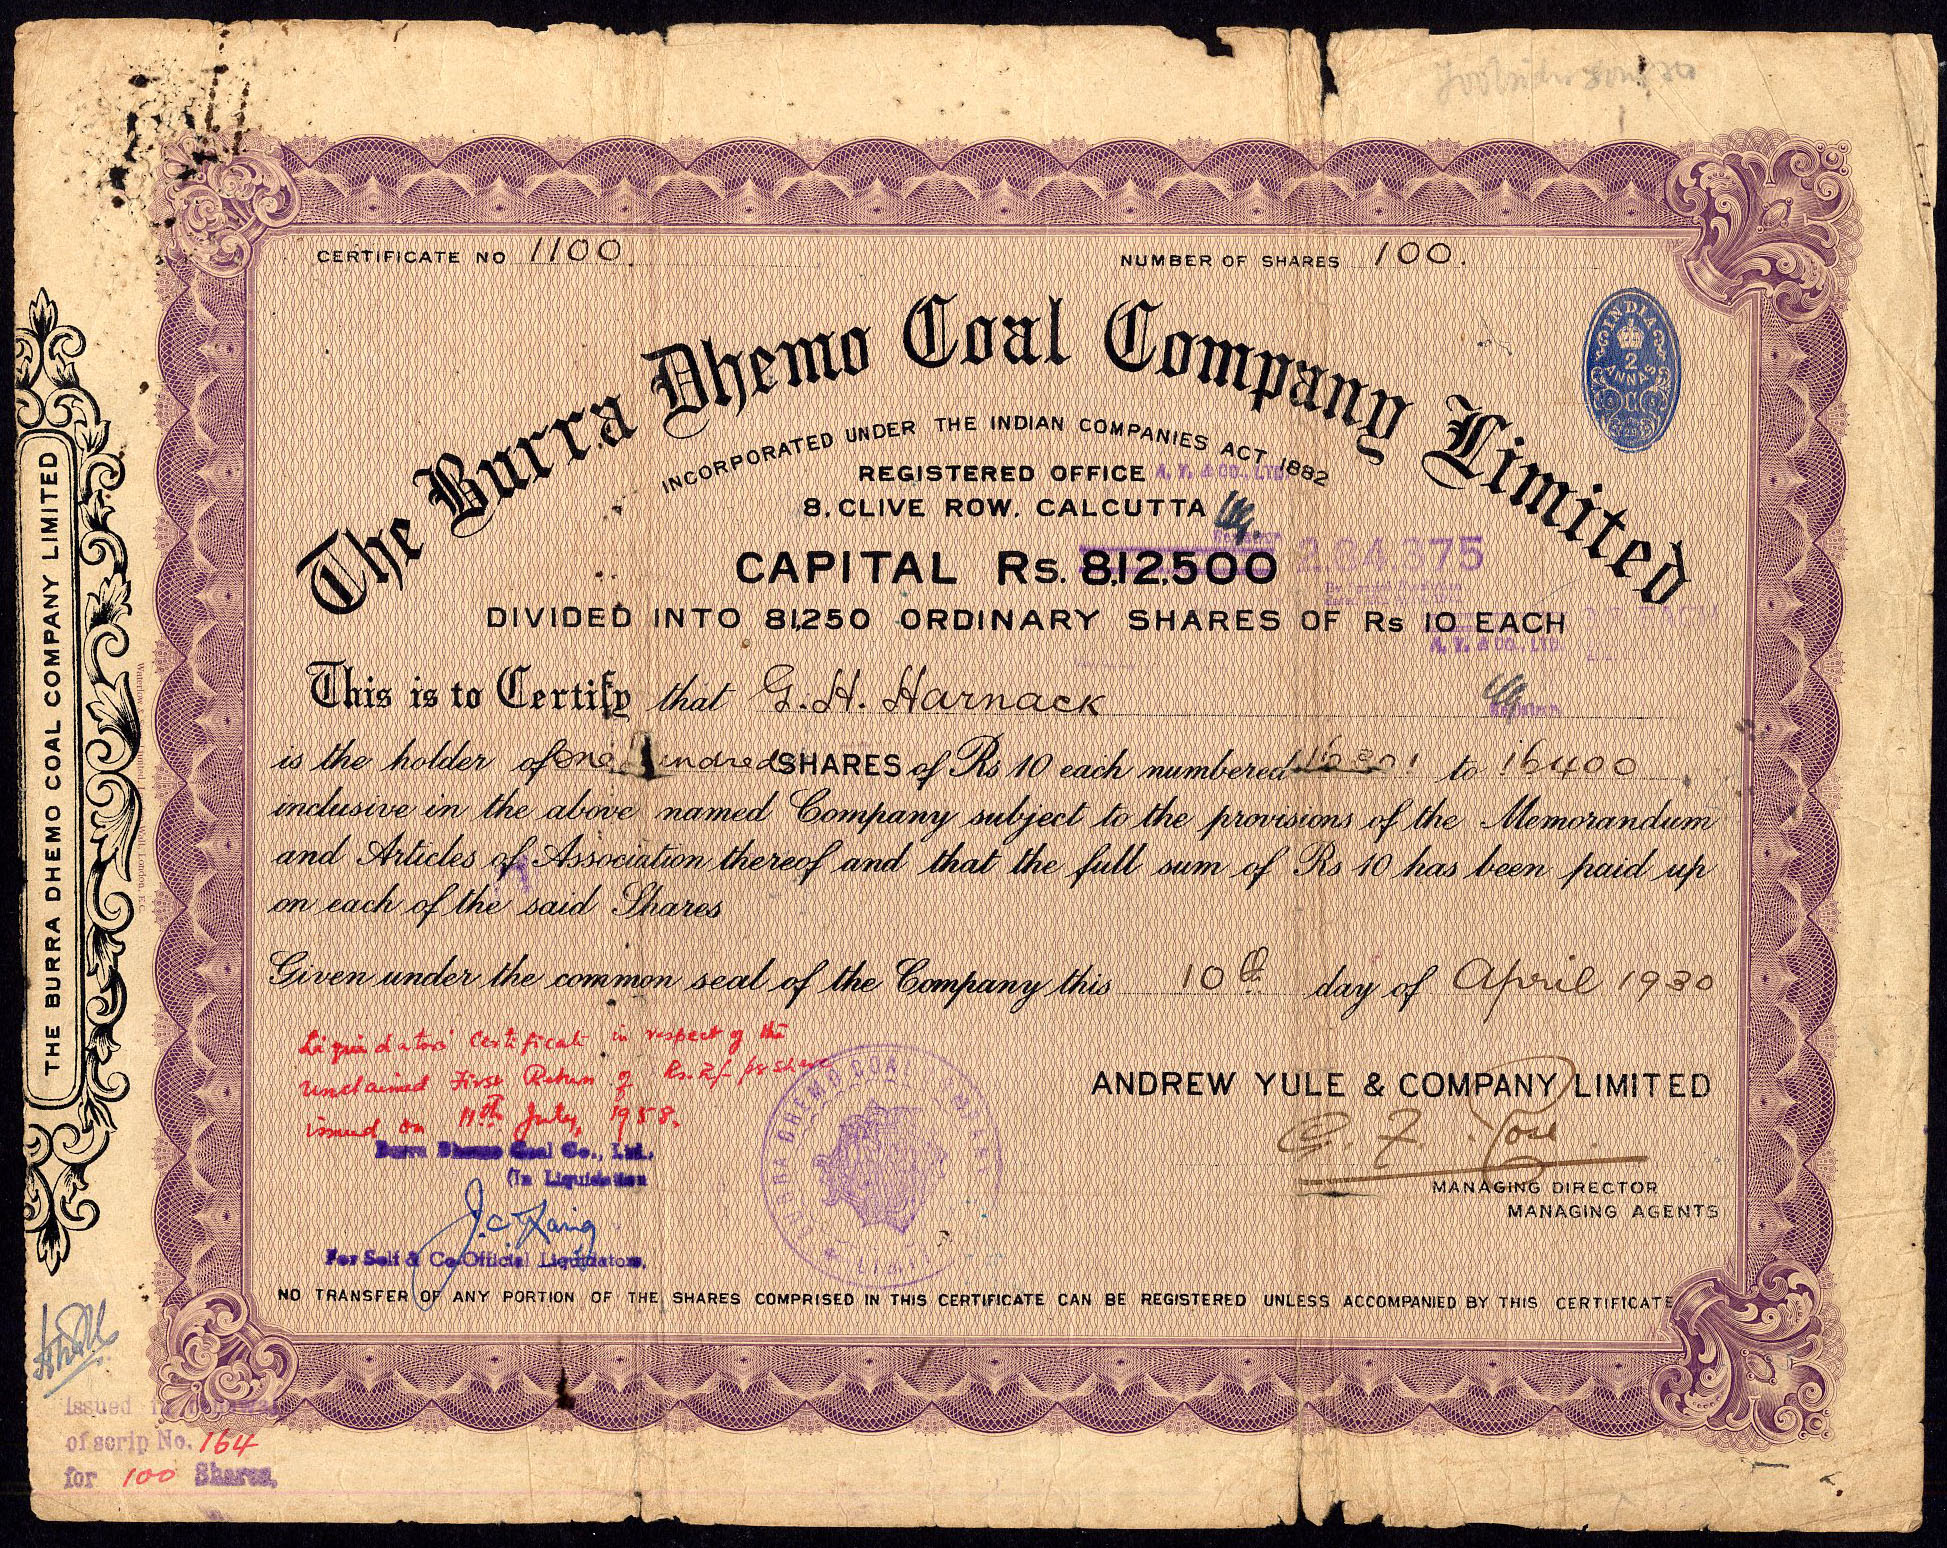 CERTIFICATE NO 1100. NUMBER OF SHARES 100.
The Burra Dhemo Coal Company Limited
INDIA
2
ANNAS
INCORPORATED UNDER THE INDIAN COMPANIES ACT 1882
REGISTERED OFFICE A. Y. & CO., LTD.
8, CLIVE ROW, CALCUTTA
CAPITAL Rs. 8,12,500
DIVIDED INTO 81,250 ORDINARY SHARES OF Rs 10 EACH
A. Y. & CO., LTD.
This is to Certify that G. H. Harnack
is the holder of One Hundred SHARES of Rs 10 each numbered 16301 to 16400
inclusive in the above named Company subject to the provisions of the Memorandum
and Articles of Association thereof and that the full sum of Rs 10 has been paid up
on each of the said Shares
Given under the common seal of the Company this 10th day of April 1930
Liquidators' Certificate in respect of the
unclaimed First Return of Rs. 2/- per share
issued on 11th July, 1958.
Burra Dhemo Coal Co., Ltd.
(In Liquidation
For Self & Co-Official Liquidators.
ANDREW YULE & COMPANY LIMITED
MANAGING DIRECTOR
MANAGING AGENTS
NO TRANSFER OF ANY PORTION OF THE SHARES COMPRISED IN THIS CERTIFICATE CAN BE REGISTERED UNLESS ACCOMPANIED BY THIS CERTIFICATE
THE BURRA DHEMO COAL COMPANY LIMITED
Issued in renewal
of scrip No. 164
for 100 Shares.